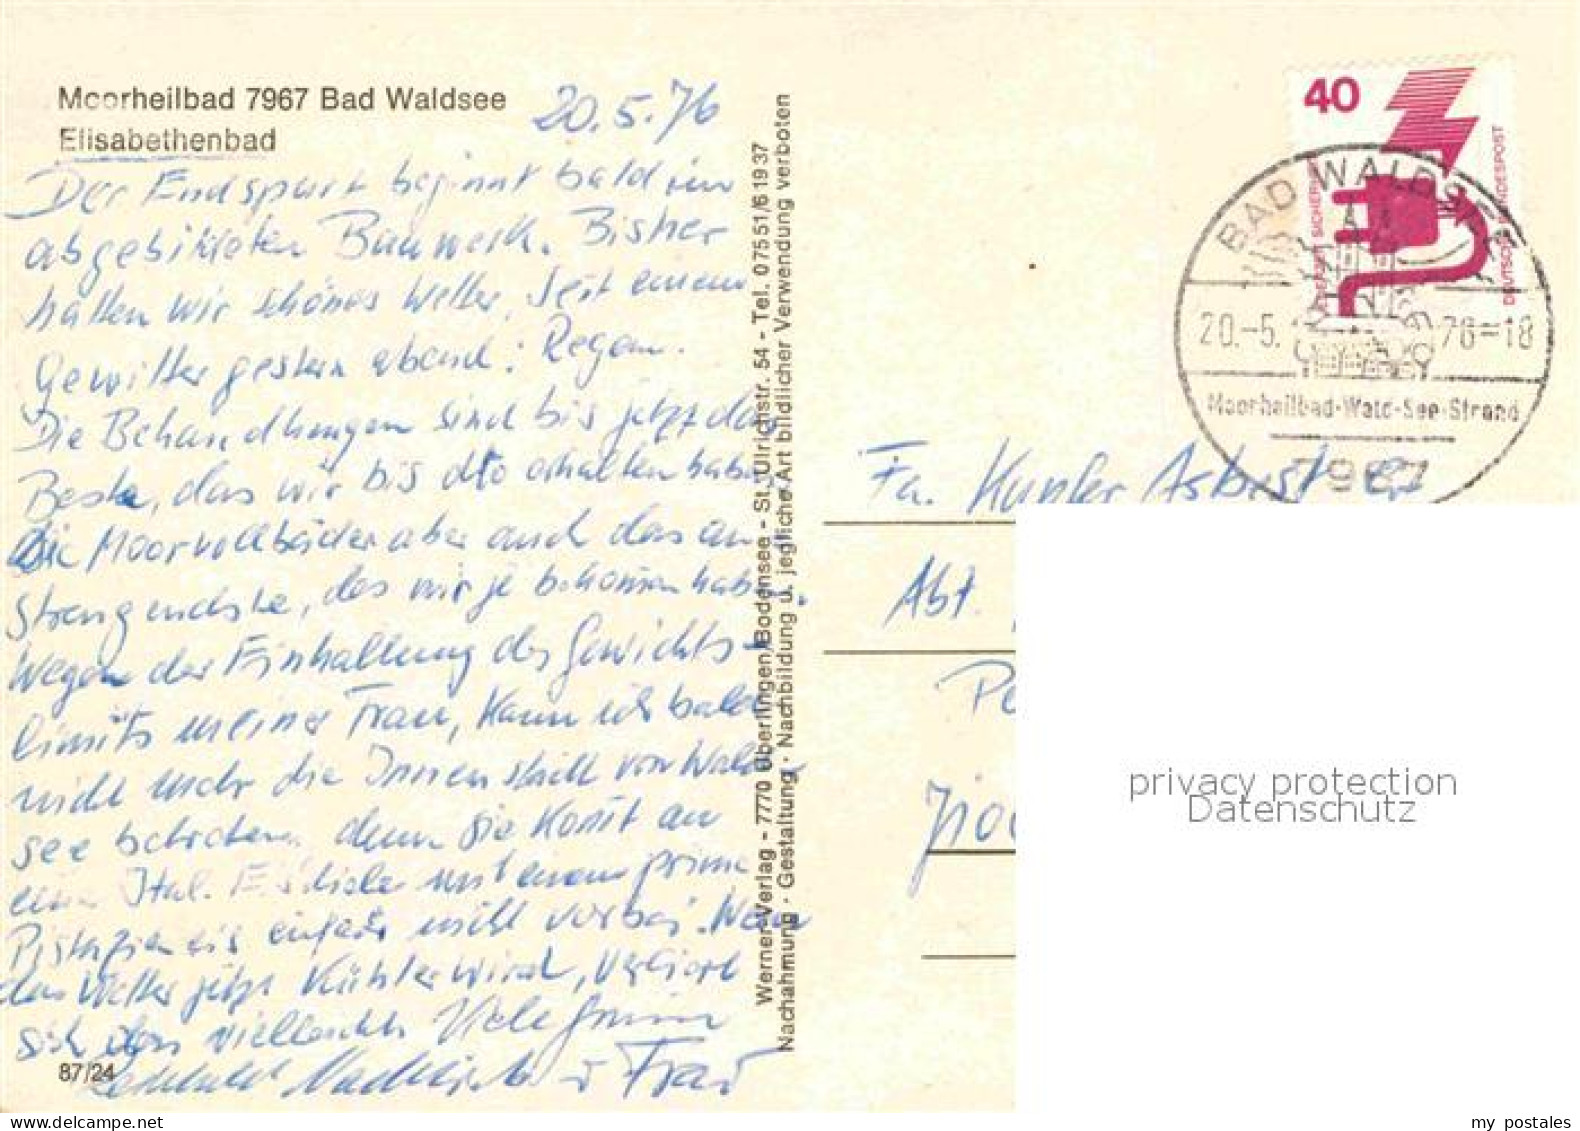 Moorheilbad 7967 Bad Waldsee
Elisabethenbad
20.5.76
Der Endspurt beginnt bald im
abgebildeten Bauwerk. Bisher
hatten wir schönes Wetter, seit einem
Gewitter gestern abend: Regen.
Die Behandlungen sind bis jetzt das
Beste, das wir bis dto erhalten haben
die Moorvollbäder aber auch das an-
strengendste, das wir je bekommen haben.
Wegen der Einhaltung des Gewichts-
limits meiner Frau, kann ich bald
nicht mehr die Innenstadt von Wald-
see betreten, denn sie kommt an
einer Ital. Eisdiele mit einem prima
Pistazieneis einfach nicht vorbei. Wenn
das Wetter jetzt kühler wird, verliert
sich das vielleicht. Viele Grüsse
u Frau
87/24
Werner-Verlag - 7770 Überlingen/Bodensee - St. Ulrichstr. 54 - Tel. 07551/61937
Nachahmung · Gestaltung · Nachbildung u. jegliche Art bildlicher Verwendung verboten
40
DEUTSCHE BUNDESPOST
BAD WALDSEE
20.-5. 76-18
Moorheilbad-Wald-See-Strand
7967
Fa. Asbest
Abt.
privacy protection
Datenschutz
my postales